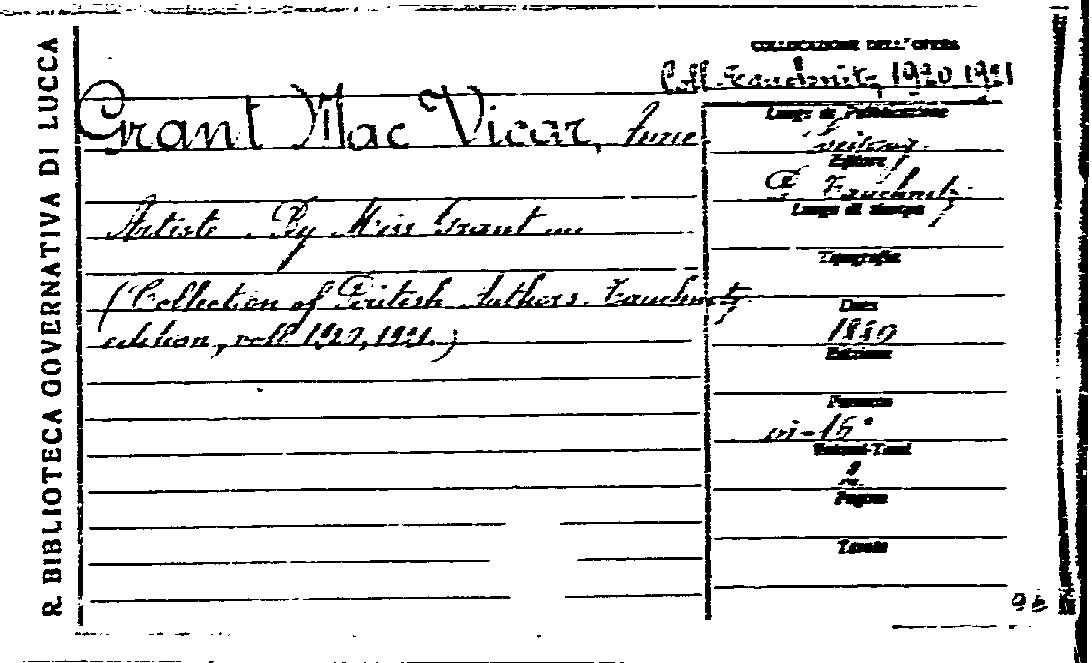 R. BIBLIOTECA GOVERNATIVA DI LUCCA
Grant Mac Vicar,
Artiste. By Miss Grant ...
(Collection of British Authors. Tauchnitz
edition, voll 1920, 1921.)
COLLOCAZIONE DELL'OPERA
Coll. Tauchnitz, 1920 1921
Luogo di Pubblicazione
Editore
B. Tauchnitz
Luogo di stampa
Tipografia
Data
1880
Edizione
Formato
in-16°
Volumi-Tomi
2.
Pagine
Tavole